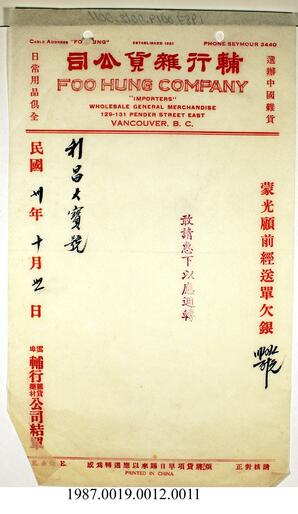 CABLE ADDRESS "FOOHUNG"
ESTABLISHED 1921
PHONE SEYMOUR 3440
司公貨雜行輔
FOO HUNG COMPANY
"IMPORTERS"
WHOLESALE GENERAL MERCHANDISE
129-131 PENDER STREET EAST
VANCOUVER, B. C.
選辦中國雜貨
日常用品俱全
蒙光顧前經送單欠銀
敢請惠下以應週轉
利昌大寶號
民國卅年十月
日
輔行
公司結單
E. & O. E.
PRINTED IN CHINA
正對核請
1987.0019.0012.0011